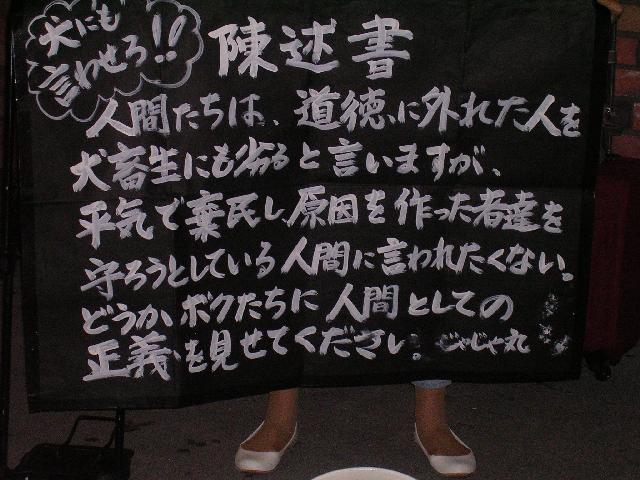 犬にも
言わせろ!!
陳述書
人間たちは、道徳に外れた人を
犬畜生にも劣ると言いますが、
平気で棄民し原因を作った者達を
守ろうとしている人間に言われたくない。
どうか、ボクたちに人間としての
正義を見せてください じゃじゃ丸